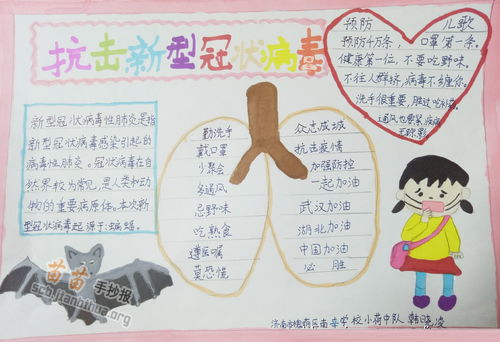 抗击新型冠状病毒
预防 儿歌
预防千万条，口罩第一条。
健康第一位，不要吃野味。
不往人群挤，病毒不缠你。
洗手很重要，胜过吃补药。
通风也要紧，病菌
无踪影
新型冠状病毒性肺炎是指
新型冠状病毒感染引起的
病毒性肺炎。冠状病毒在自
然界较为常见，是人类和动
物的重要病原体。本次新
型冠状病毒起源于蝙蝠。
勤洗手
戴口罩
少聚会
多通风
忌野味
吃熟食
遵医嘱
莫恐慌
众志成城
抗击疫情
加强防控
一起加油
武汉加油
湖北加油
中国加油
必胜
苗苗手抄报
scb.jianbihua.org
济南市槐荫区南辛学校小荷中队 韩晓凌